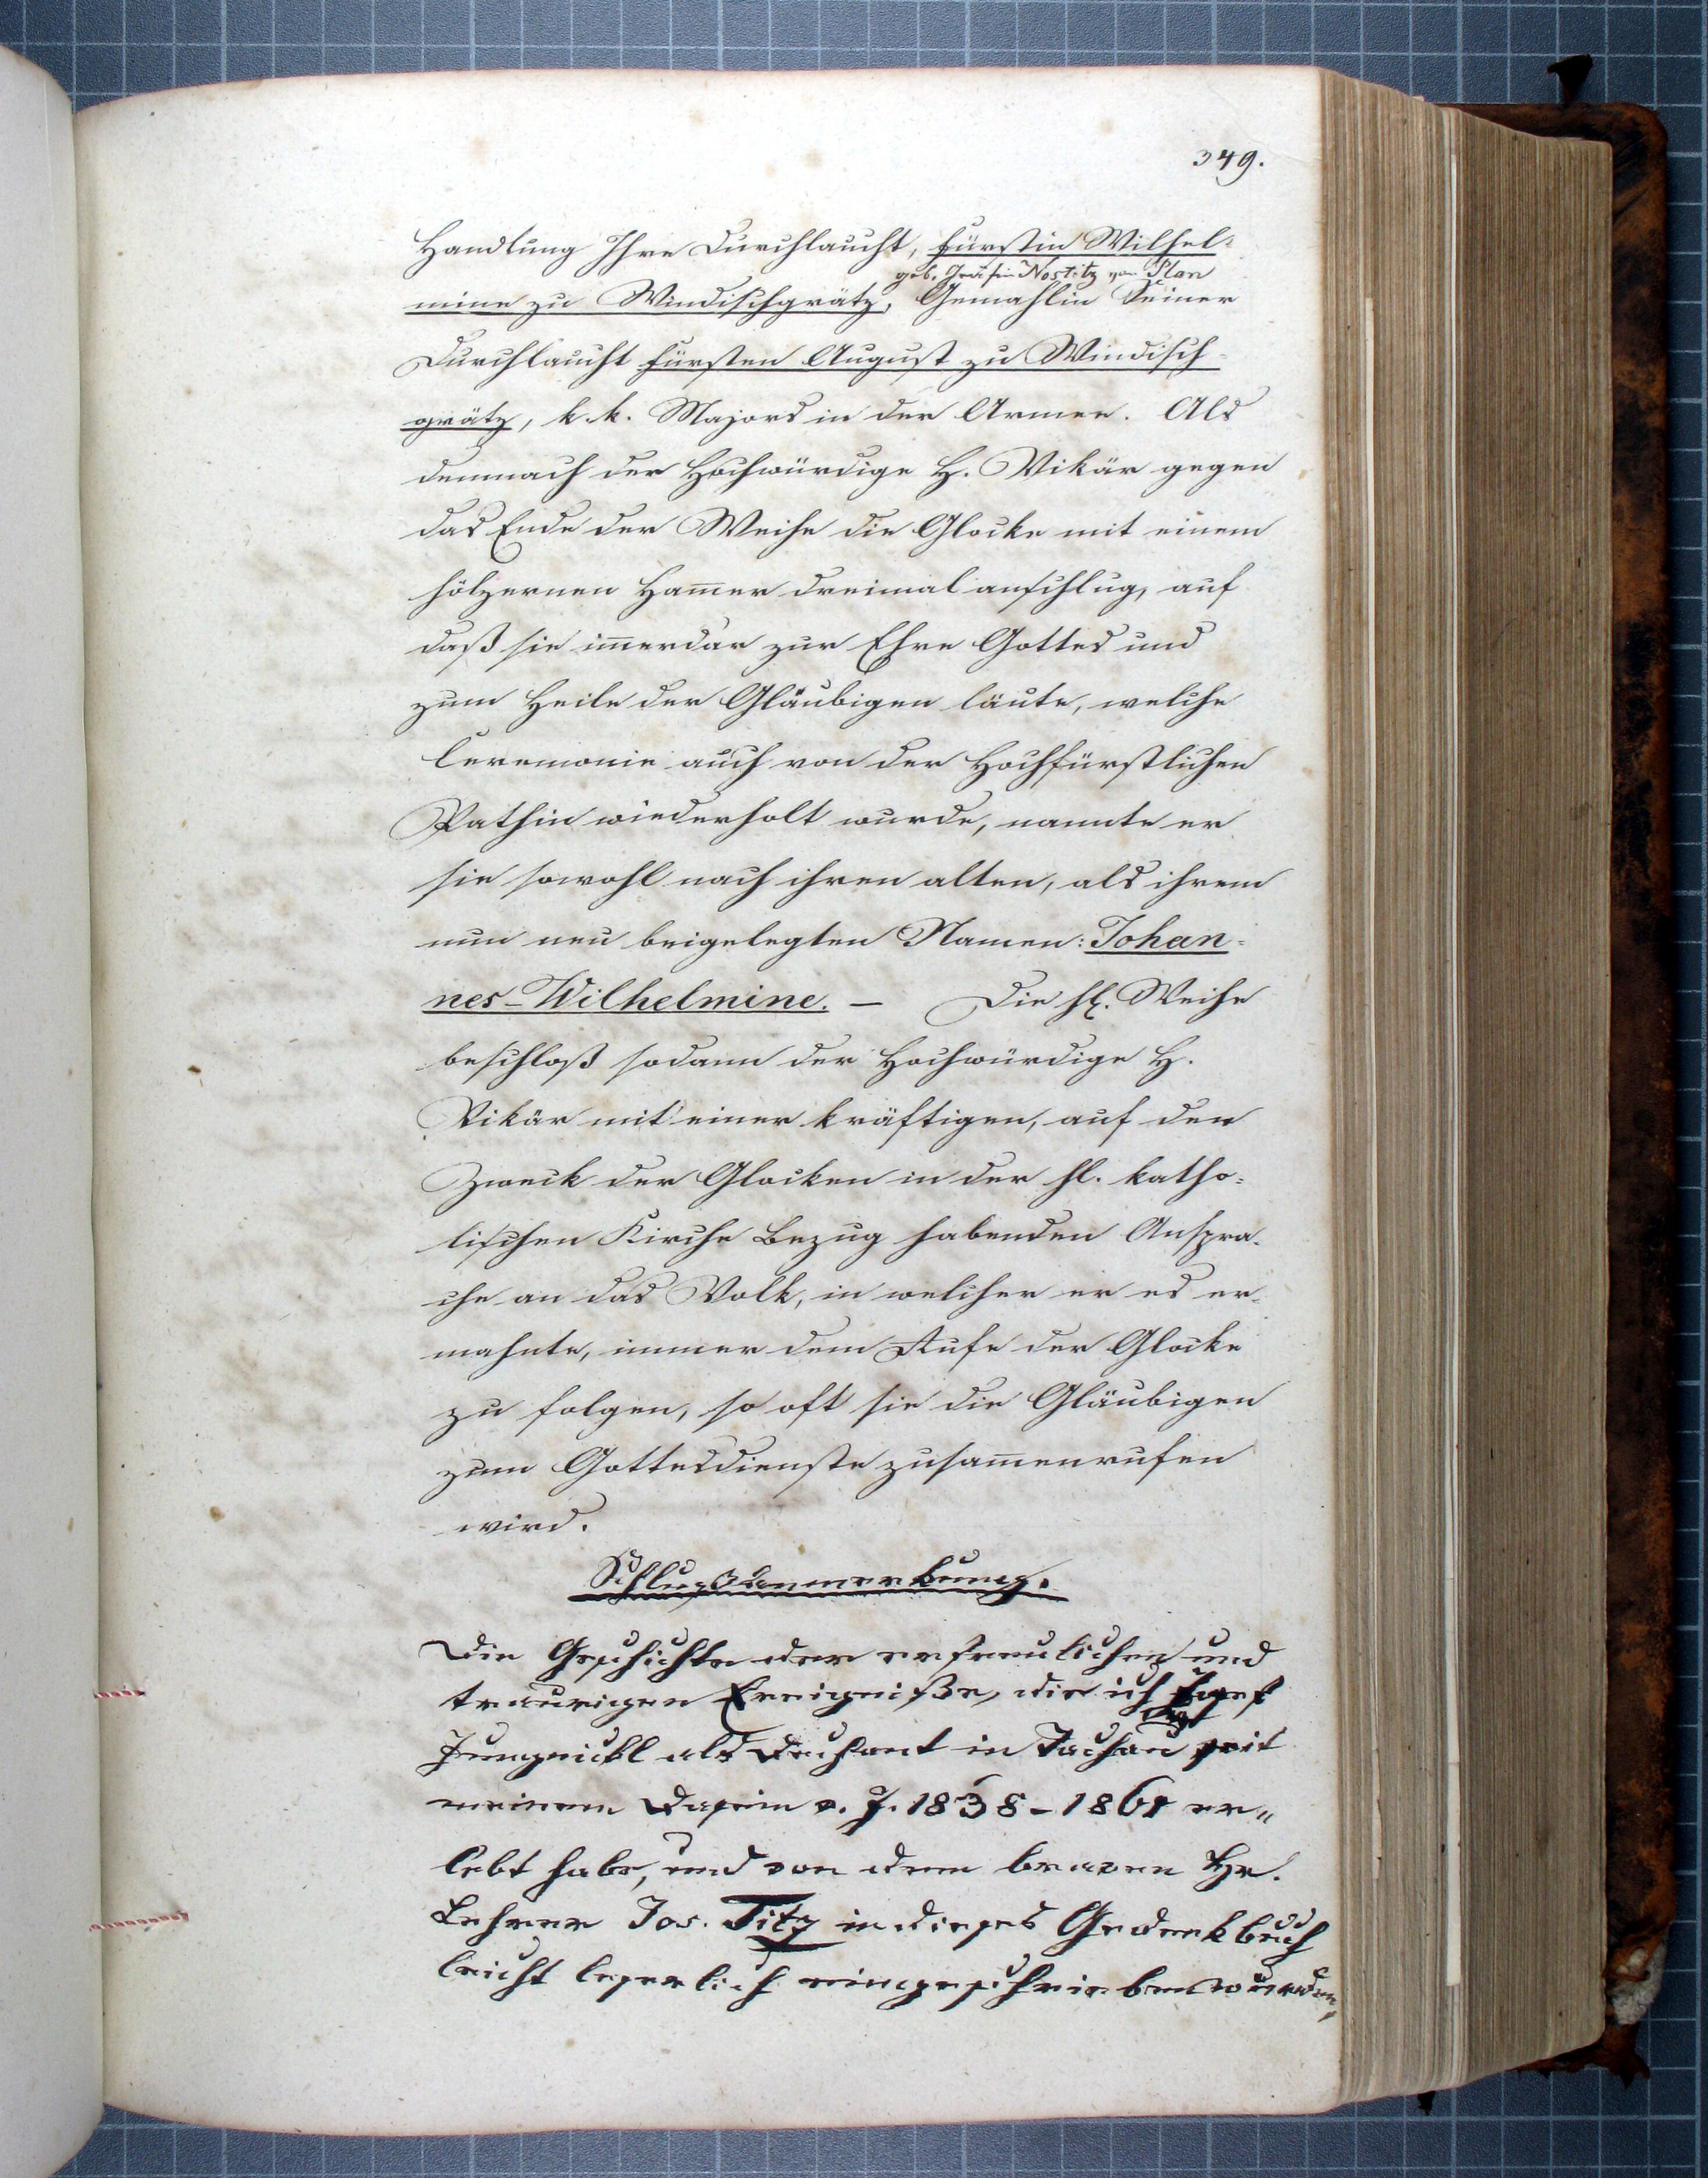 349.
Handlung Ihre Durchlaucht, Fürstin Wilhel=
geb. Gräfin Nostitz von Plan
mine zu Windischgrätz, Gemahlin Seiner
Durchlaucht Fürsten August zu Windisch=
grätz, k. k. Majors in der Armee. Als
demnach der Hochwürdige H. Vikär gegen
das Ende der Weihe die Glocke mit einem
hölzernen Ham̅er dreimal anschlug, auf
daß sie im̅erdar zur Ehre Gottes und
zum Heile der Gläubigen läute, welche
Ceremonie auch von der Hochfürstlichen
Pathin wiederholt wurde, nannte er
sie sowohl nach ihren alten, als ihrem
nun neu beigelegten Namen: Johan=
nes-Wilhelmine. — Die hl. Weihe
beschloß sodann der Hochwürdige H.
Vikär mit einer kräftigen, auf den
Zweck der Glocken in der hl. katho=
lischen Kirche Bezug habenden Anspra=
che an das Volk, in welcher er es er=
mahnte, immer dem Rufe der Glocke
zu folgen, so oft sie die Gläubigen
zum Gottesdienste zusam̅enrufen
wird.
Schlußanmerkung.
Die Geschichte der erfreulichen und
traurigen Ereigniße, die ich Josef
Jungnickl als Dechant in Tachau seit
meinem Dasein v. J. 1838-1861 er„
lebt habe, und von dem braven Hr.
Lehrer Jos. Titz in dieses Gedenkbuch
leicht leserlich eingeschrieben wurden,